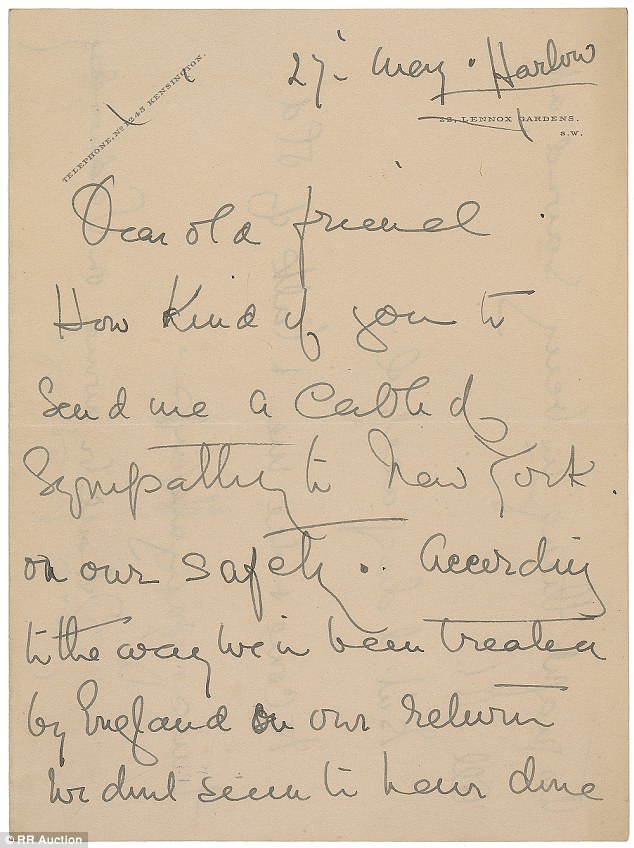 TELEPHONE, Nº 1245 KENSINGTON.
27 May · Harlow
22, LENNOX GARDENS.
S.W.
Dear old friend
How kind of you to
Send me a Cable of
Sympathy to New York
on our safety. According
to the way we've been treated
by England on our return
we didnt seem to have done
© RR Auction